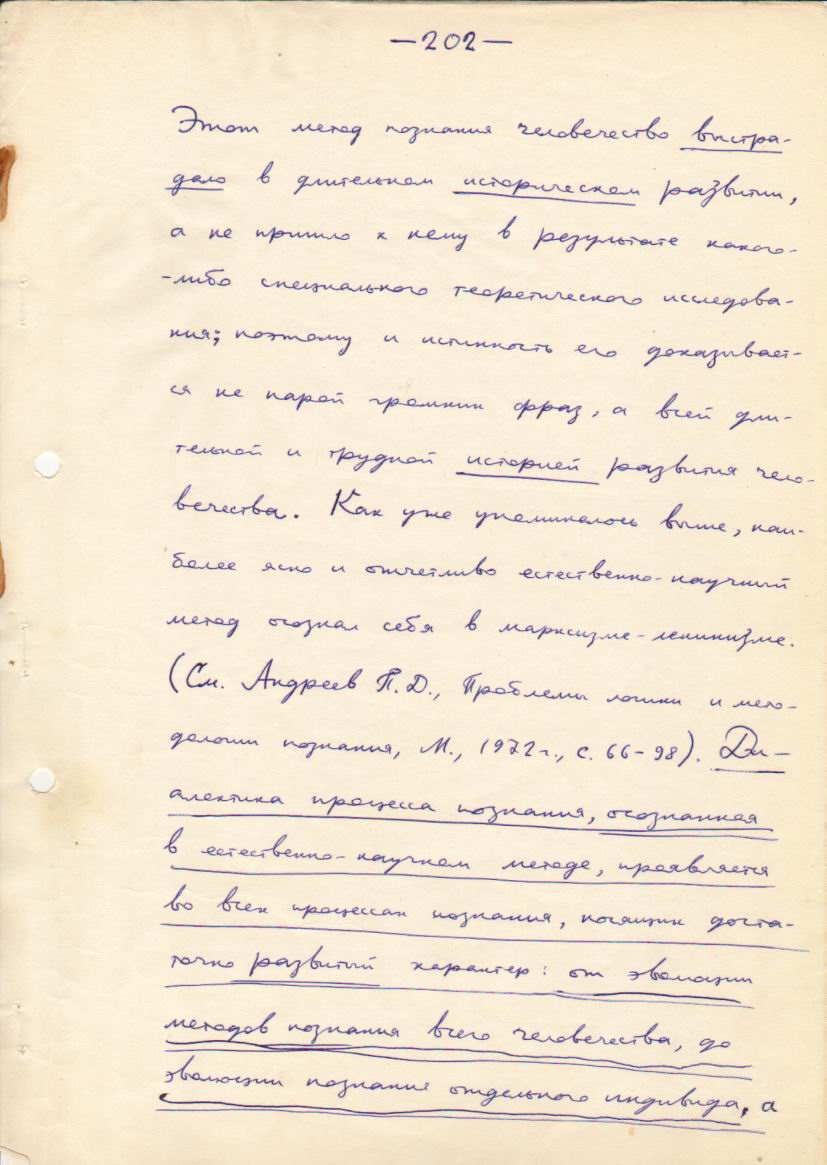 —202—
Этот метод познания человечество выстра-
дало в длительном историческом развитии,
а не пришло к нему в результате какого-
-либо специального теоретического исследова-
ния; поэтому и истинность его доказывает-
ся не парой громких фраз, а всей дли-
тельной и трудной историей развития чело-
вечества. Как уже упоминалось выше, наи-
более ясно и отчетливо естественно-научный
метод осознал себя в марксизме-ленинизме.
(См. Андреев П.Д., Проблемы логики и мето-
дологии познания, М., 1972г., с. 66-98). Ди-
алектика процесса познания, осознанная
в естественно-научном методе, проявляется
во всех процессах познания, носящих доста-
точно развитый характер: от эволюции
методов познания всего человечества, до
эволюции познания отдельного индивида, а